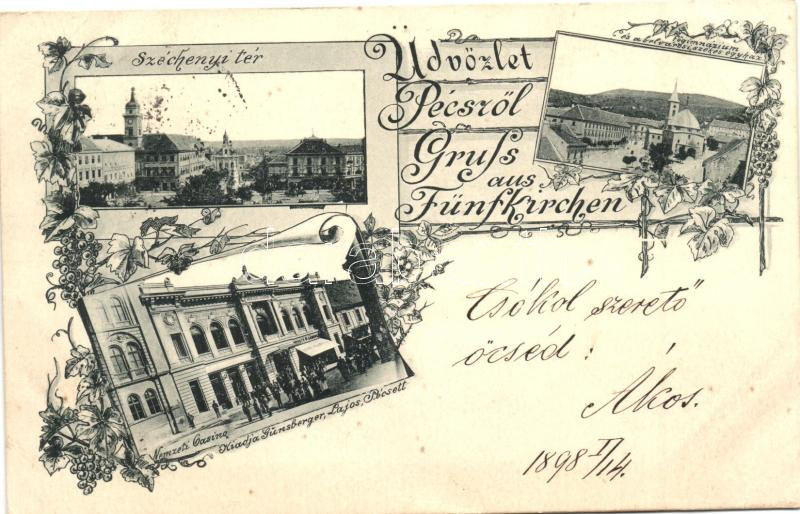 Széchenyi tér
Üdvözlet
Pécsről
Gruss
aus
Fünfkirchen
Főgymnázium
és a belvárosi székesegyház
Nemzeti Casino
Kiadja Günsberger, Lajos, Pécsett
Csókol szerető
öcséd:
Ákos.
1898 IV/14.